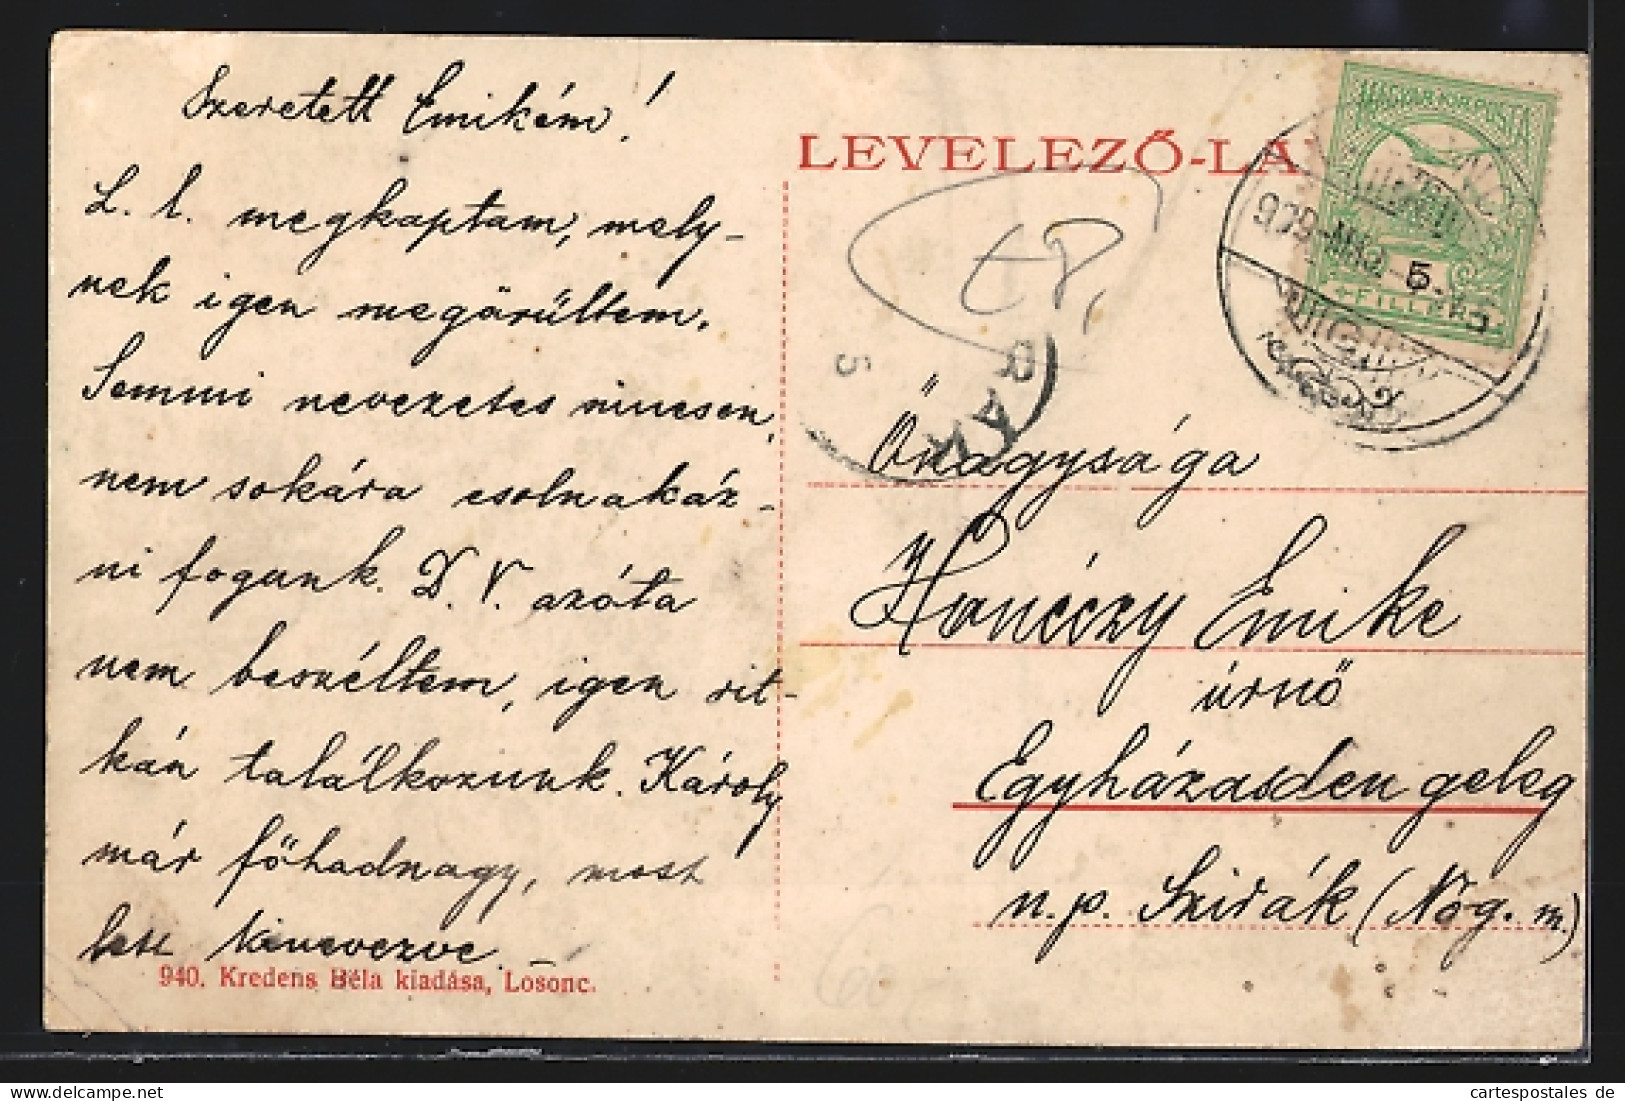 Szeretett Emikém!
L. l. megkaptam, mely-
nek igen megörültem.
Semmi nevezetes nincsen,
nem sokára csolnakáz-
ni fogunk. D. V. azóta
nem beszéltem, igen rit-
kán találkozunk. Károly
már főhadnagy, most
lett kinevezve. –
940. Kredens Béla kiadása, Losonc.
LEVELEZŐ-LA
MAGYAR KIR. POSTA
909
5.
FILLÉR
5
RÁK
Őnagysága
Emike
úrnő
Egyházasdengeleg
u. p. Szirák (Nóg. m.)
60,-
cartespostales de